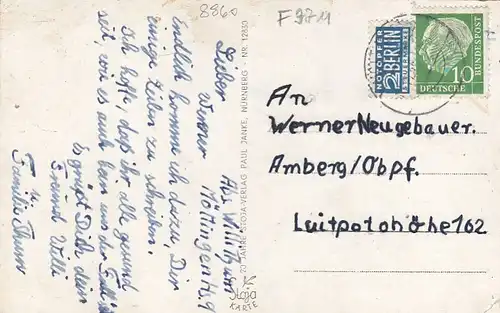 8860
F 9711
Lieber
Werner
Endlich komme ich dazu, Dir
einige Zeilen zu schreiben.
Ich hoffe, daß ihr alle gesund
seit, wie es auch bei uns der Fall ist
Es grüßt Dich dein
Freund Willi
u.
Familie Thum
Abs. Willi Thum
Nr. 9
70 JAHRE STOJA-VERLAG PAUL JANKE, NÜRNBERG - NR. 12850
Stoja
KARTE
NOTOPFER
2 BERLIN
STEUERMARKE
DEUTSCHE
BUNDESPOST
10
An
Werner Neugebauer.
Amberg/Obpf.
Luitpoldhöhe 162